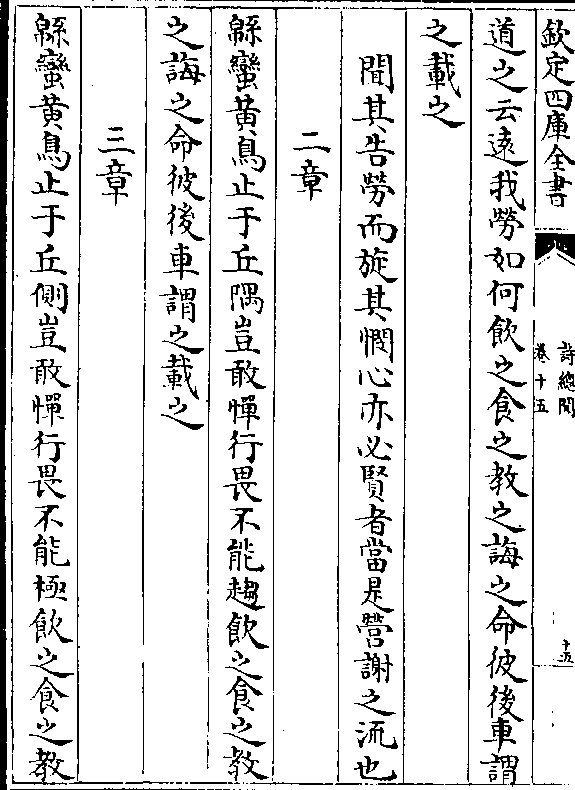 欽定四庫全書
詩總聞
卷十五
十五
道之云遠我勞如何飲之食之教之誨之命彼後車謂
之載之
聞其告勞而旋其憫心亦必賢者當是營謝之流也
二章
緜蠻黃鳥止于丘隅豈敢憚行畏不能趨飲之食之教
之誨之命彼後車謂之載之
三章
緜蠻黃鳥止于丘側豈敢憚行畏不能極飲之食之教